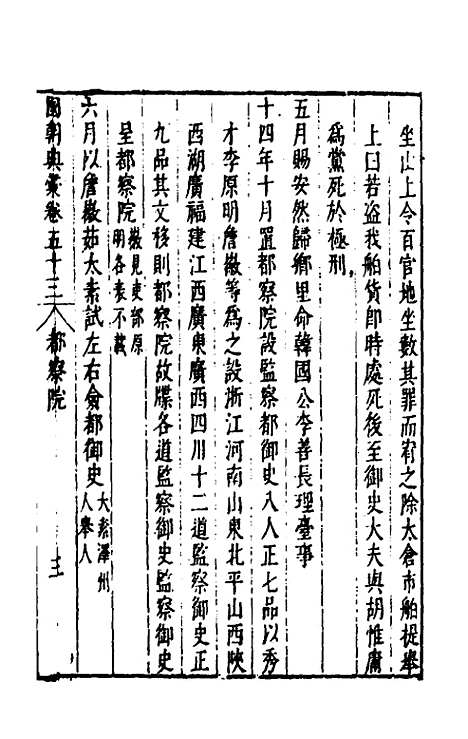 坐山上令百官地坐數其罪而宥之除太倉市舶提舉
上曰若盜我舶貨即時處死後至御史大夫與胡惟庸
爲黨死於極刑
五月賜安然歸鄉里命韓國公李善長理臺事
十四年十月置都察院設監察都御史八人正七品以秀
才李原明詹徽等爲之設浙江河南山東北平山西陝
西湖廣福建江西廣東廣西四川十二道監察御史正
九品其文移則都察院故牒各道監察御史監察御史
呈都察院徽見吏部原明各表不載
六月以詹徽茹太素試左右僉都御史太素澤州人舉人
國朝典彙卷五十三 都察院 三